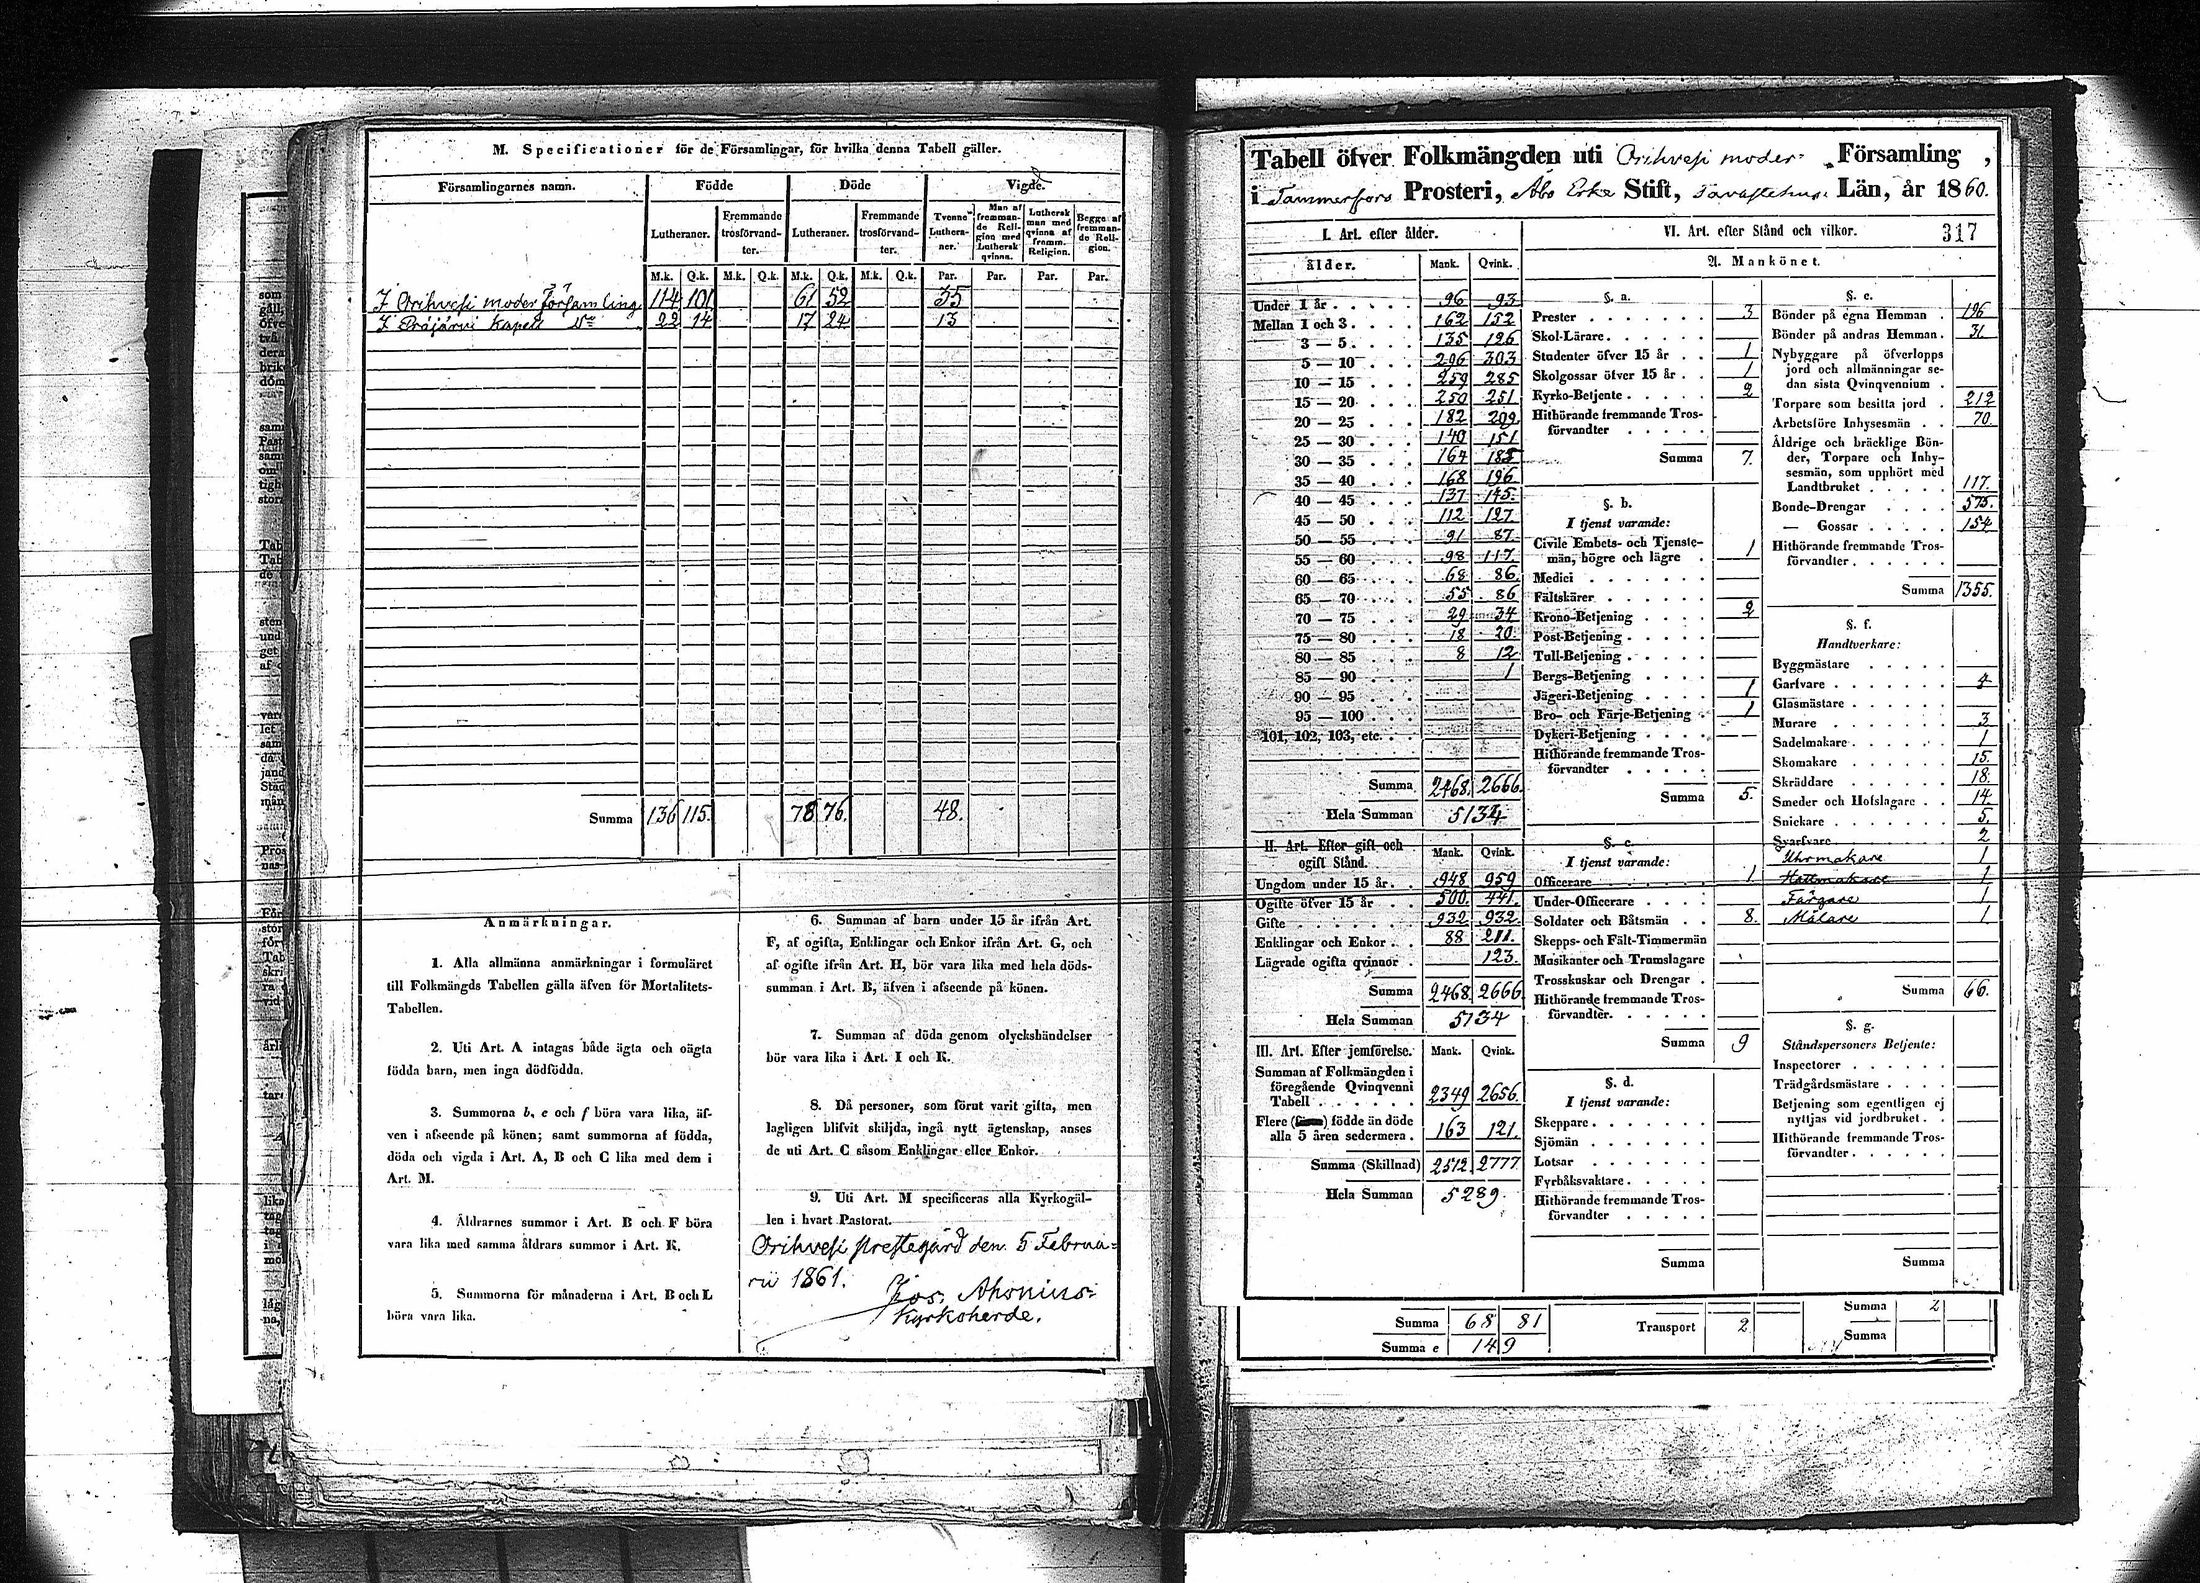 M. Specificationer för de Församlingar, för hvilka denna Tabell gäller.
Församlingarnes namn. Födde Döde Vigde.
Lutheraner. Fremmande trosförvandter. Lutheraner. Fremmande trosförvandter. Tvenne Lutheraner. Man af fremmande Religion med Luthersk qvinna. Luthersk man med qvinna af fremm. Religion. Begge af fremmande Religion.
M.k. Q.k. M.k. Q.k. M.k. Q.k. M.k. Q.k. Par. Par. Par. Par.
I Orihvesi moder församling 114 101 61 52 35
I Eräjärvi Kapell 22 14 17 24 13
Summa 136 115. 78 76. 48.
Anmärkningar.
1. Alla allmänna anmärkningar i formuläret
till Folkmängds Tabellen gälla äfven för Mortalitets-
Tabellen.
2. Uti Art. A intagas både ägta och oägta
födda barn, men inga dödfödda.
3. Summorna b, e och f böra vara lika, äf-
ven i afseende på könen; samt summorna af födda,
döda och vigda i Art. A, B och C lika med dem i
Art. M.
4. Åldrarnes summor i Art. B och F böra
vara lika med samma åldrars summor i Art. K.
5. Summorna för månaderna i Art. B och L
böra vara lika.
6. Summan af barn under 15 år ifrån Art.
F, af ogifta, Enklingar och Enkor ifrån Art. G, och
af ogifte ifrån Art. H, bör vara lika med hela döds-
summan i Art. B, äfven i afseende på könen.
7. Summan af döda genom olyckshändelser
bör vara lika i Art. I och K.
8. Då personer, som förut varit gifta, men
lagligen blifvit skiljda, ingå nytt ägtenskap, anses
de uti Art. C såsom Enklingar eller Enkor.
9. Uti Art. M specificeras alla Kyrkogäl-
len i hvart Pastorat.
Orihvesi prestegård den 5 Februa=
rii 1861.
Jos. Ahonius
Kyrkoherde.
Tabell öfver Folkmängden uti Orihvesi moder= Församling,
i Tammerfors Prosteri, Åbo Erke Stift, Tavastehus Län, år 1860.
317
I. Art. efter ålder.
ålder. Mank. Qvink.
Under 1 år 96 93
Mellan 1 och 3 162 152
3 — 5 135 126
5 — 10 296 303
10 — 15 259 285
15 — 20 250 251
20 — 25 182 209
25 — 30 140 151
30 — 35 164 185
35 — 40 168 196
40 — 45 137 145
45 — 50 112 127
50 — 55 91 87
55 — 60 98 117
60 — 65 68 86
65 — 70 55 86
70 — 75 29 34
75 — 80 18 20
80 — 85 8 12
85 — 90 1
90 — 95
95 — 100
101, 102, 103, etc.
Summa 2468. 2666.
Hela Summan 5134
II. Art. Efter gift och ogift Stånd. Mank. Qvink.
Ungdom under 15 år 948 959
Ogifte öfver 15 år 500 441
Gifte 932 932
Enklingar och Enkor 88 211
Lägrade ogifta qvinnor 123.
Summa 2468. 2666.
Hela Summan 5134
III. Art. Efter jemförelse. Mank. Qvink.
Summan af Folkmängden i
föregående Qvinqvenni
Tabell 2349 2656
Flere födde än döde
alla 5 åren sedermera 163 121
Summa (Skillnad) 2512 2777
Hela Summan 5289.
VI. Art. efter Stånd och vilkor.
A. Mankönet.
§. a.
Prester 3
Skol-Lärare
Studenter öfver 15 år 1
Skolgossar öfver 15 år 1
Kyrko-Betjente 2
Hithörande fremmande Tros-
förvandter
Summa 7.
§. b.
I tjenst varande:
Civile Embets- och Tjenste-
män, högre och lägre 1
Medici
Fältskärer
Krono-Betjening 2
Post-Betjening
Tull-Betjening
Bergs-Betjening
Jägeri-Betjening 1
Bro- och Färje-Betjening 1
Dykeri-Betjening
Hithörande fremmande Tros-
förvandter
Summa 5.
§. c.
I tjenst varande:
Officerare 1
Under-Officerare
Soldater och Båtsmän 8.
Skepps- och Fält-Timmermän
Musikanter och Trumslagare
Trosskuskar och Drengar
Hithörande fremmande Tros-
förvandter
Summa 9
§. d.
I tjenst varande:
Skeppare
Sjömän
Lotsar
Fyrbåksvaktare
Hithörande fremmande Tros-
förvandter
Summa
§. e.
Bönder på egna Hemman 196
Bönder på andras Hemman 31.
Nybyggare på öfverlopps
jord och allmänningar se-
dan sista Qvinqvennium
Torpare som besitta jord 212
Arbetsföre Inhysesmän 70.
Åldrige och bräcklige Bön-
der, Torpare och Inhy-
sesmän, som upphört med
Landtbruket 117.
Bonde-Drengar 575.
— Gossar 154
Hithörande fremmande Tros-
förvandter
Summa 1355.
§. f.
Handtverkare:
Byggmästare
Garfvare 4
Glasmästare
Murare 3
Sadelmakare 1
Skomakare 15.
Skräddare 18.
Smeder och Hofslagare 14
Snickare 5.
Svarfvare 2
Uhrmakare 1
Hattmakare 1
Färgare 1
Målare 1
Summa 66.
§. g.
Ståndspersoners Betjente:
Inspectorer
Trädgårdsmästare
Betjening som egentligen ej
nyttjas vid jordbruket
Hithörande fremmande Tros-
förvandter
Summa
Summa 68 81 Transport 2 Summa 2
Summa e 149 Summa